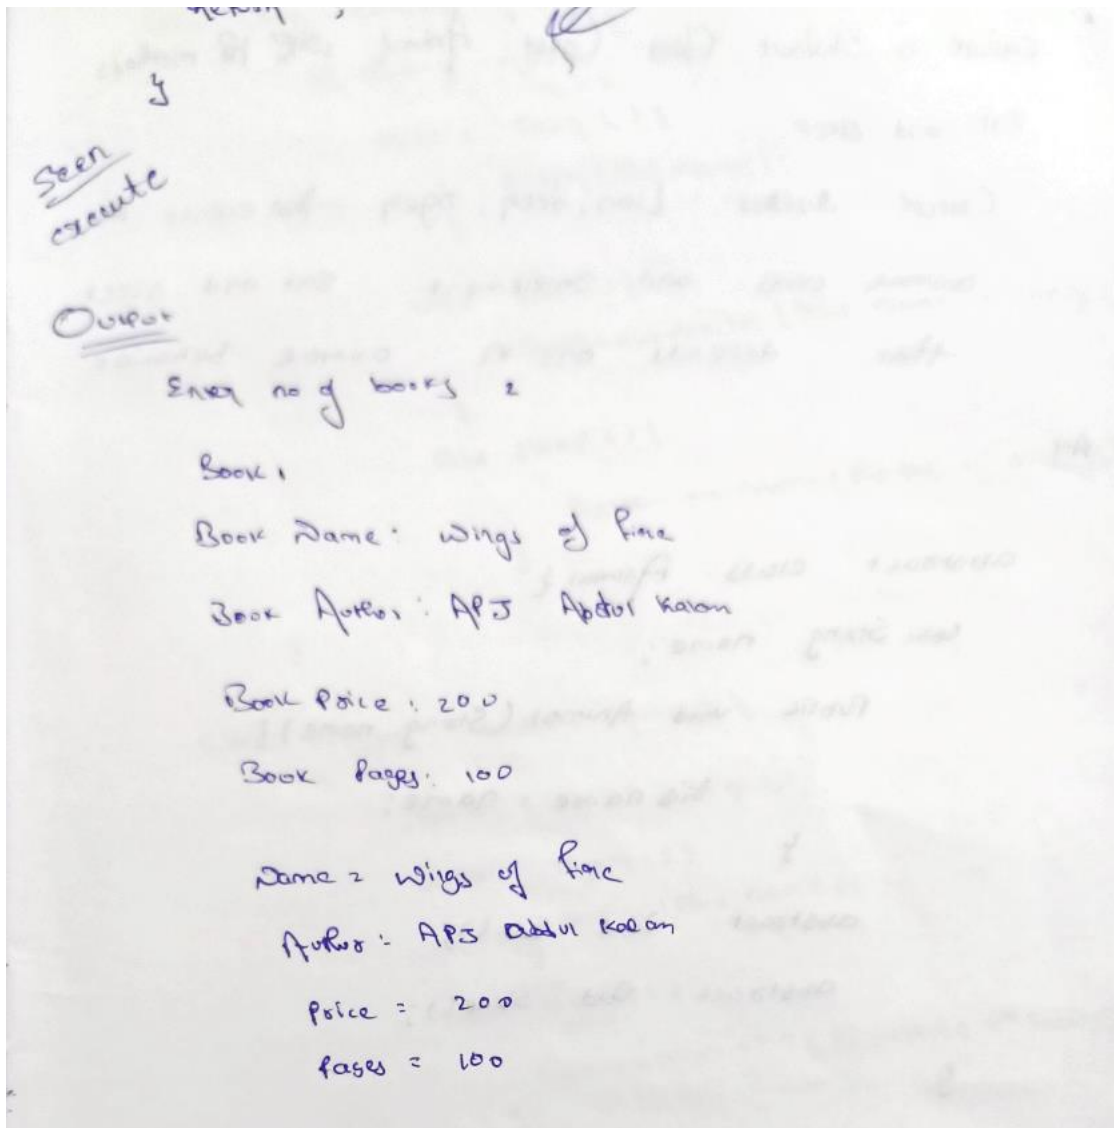 }
Seen
execute
Output
Enter no of books 2
Book 1
Book Name: Wings of Fire
Book Author: APJ Abdul Kalam
Book Price: 200
Book Pages: 100
Name = Wings of Fire
Author: APJ Abdul Kalam
Price = 200
Pages = 100